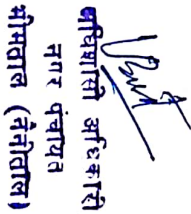 अधिशासी अधिकारी
नगर पंचायत
भीमताल (नैनीताल)